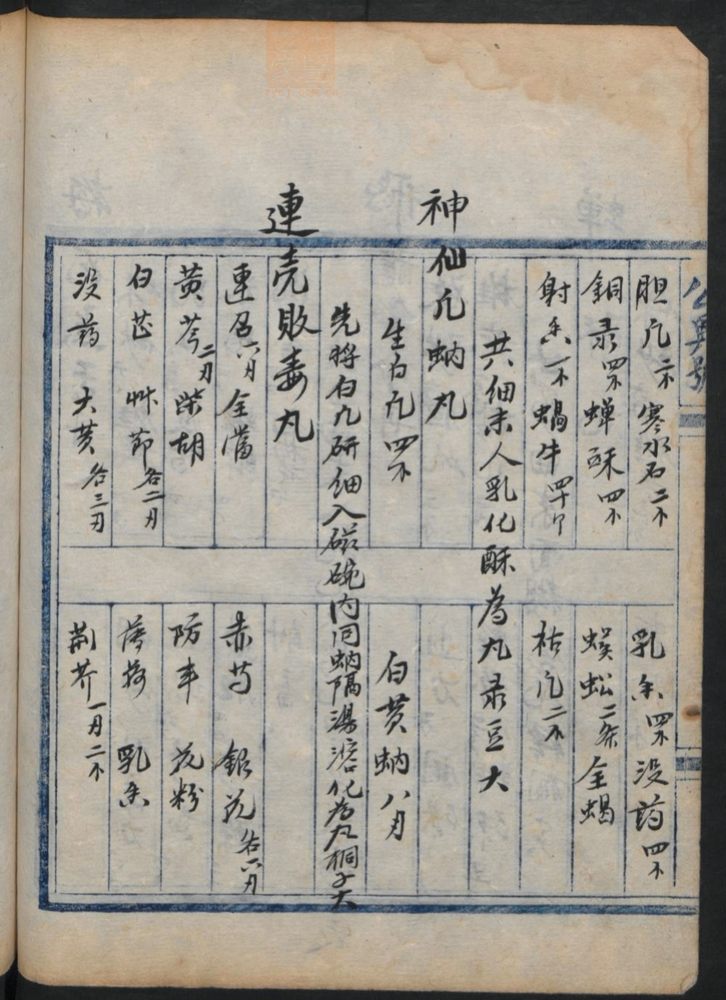 胆凢二不 寒水石二不 乳香四不 没药四不
銅录四不 蟬酥四不 蜈蚣二条 全蝎
射香一不 蝸牛四十个 枯凢二不
共細末人乳化酥為丸录豆大
神仙凢蚋丸
生白凢四不 白黄蚋八刃
先将白凢研細入磁碗内同蚋隔湯溶化為丸桐子大
連壳敗毒丸
連召六刃 全當 赤芍 銀花各六刃
黄芩二刃 柴胡 防丰 花粉
白芷 艸節各二刃 薄荷 乳香
没药 大黄各三刃 荊芥一刃二不